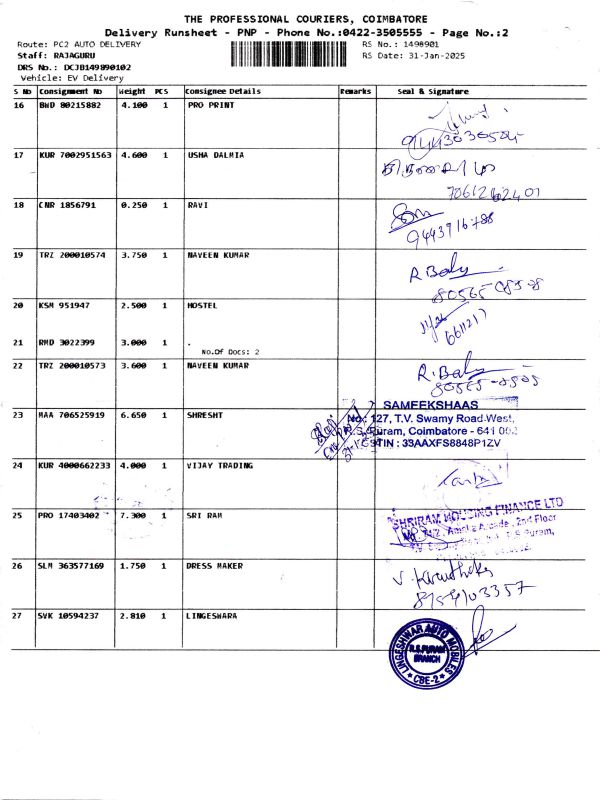 THE PROFESSIONAL COURIERS, COIMBATORE
Delivery Runsheet - PNP - Phone No.:0422-3505555 - Page No.:2
Route: PC2 AUTO DELIVERY
RS No.: 1498901
Staff: RAJAGURU
RS Date: 31-Jan-2025
DRS No.: DCJB149890102
Vehicle: EV Delivery
S No Consignment No Weight PCS Consignee Details Remarks Seal & Signature
16 BWD 80215882 4.100 1 PRO PRINT
17 KUR 7002951563 4.600 1 USHA DALMIA
7061262401
18 CNR 1856791 0.250 1 RAVI
9443916788
19 TRZ 200010574 3.750 1 NAVEEN KUMAR
R Baly
20 KSM 951947 2.500 1 HOSTEL
21 RMD 3022399 3.000 1 .
No.Of Docs: 2
22 TRZ 200010573 3.600 1 NAVEEN KUMAR
R. Baly
23 MAA 706525919 6.650 1 SHRESHT
SAMEEKSHAAS
No: 127, T.V. Swamy Road-West,
R.S. Puram, Coimbatore - 641 002
GSTIN : 33AAXFS8848P1ZV
24 KUR 4000662233 4.000 1 VIJAY TRADING
25 PRO 17403402 7.300 1 SRI RAM
SHRIRAM HOUSING FINANCE LTD
2nd Floor
26 SLM 363577169 1.750 1 DRESS MAKER
8754103357
27 SVK 10594237 2.810 1 LINGESWARA
LINGESHWAR AUTO MOBILES
R.S.PURAM
BRANCH
CBE-2